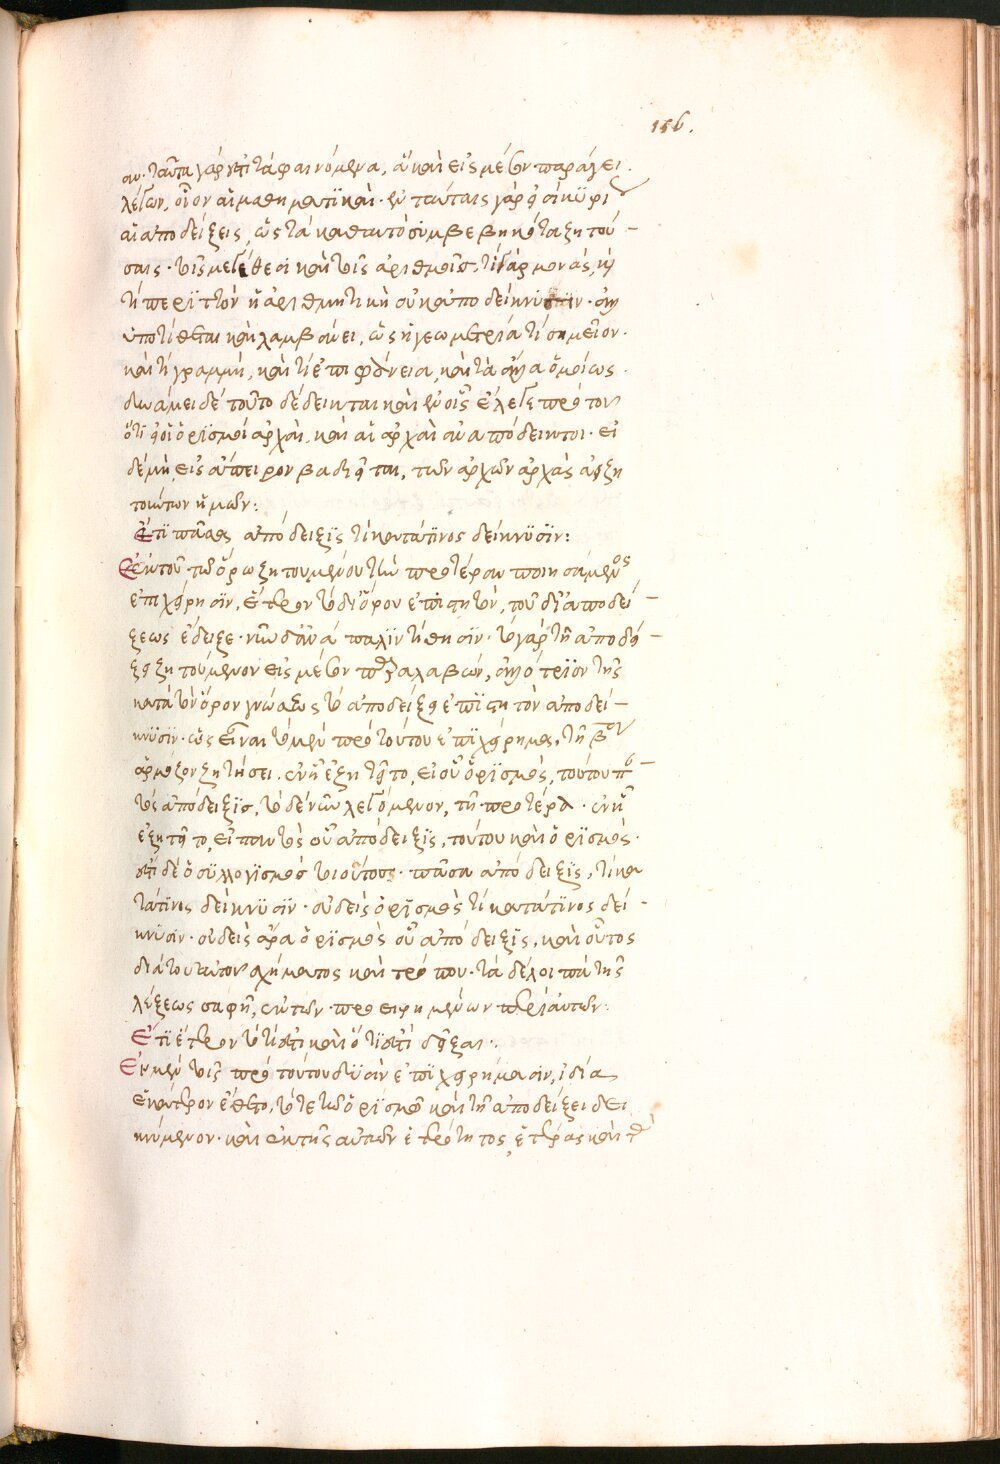 156.
αν. ταῦτα γάρ ἐστι τὰ φαινόμενα, ἃ καὶ εἰς μέσον παράγει
λέγων, οἷον αἱ μαθηματικαὶ. ἐν ταύταις γὰρ αἱ κύρι
αι ἀποδείξεις, ὡς τὰ καθ' αὑτὸ συμβεβηκότα ζητού
σαις. τοῖς μεγέθεσι καὶ τοῖς ἀριθμοῖς. τί γὰρ μονάς, ἢ
τί περιττὸν ἡ ἀριθμητικὴ οὐκ ἀποδείκνυσιν. ἀλλ
ὑποτίθεται καὶ λαμβάνει, ὡς ἡ γεωμετρία τί σημεῖον.
καὶ τί γραμμή, καὶ τί ἐπιφάνεια, καὶ τὰ ἄλλα ὁμοίως.
δυνάμει δὲ τοῦτο δέδεικται καὶ ἐν οἷς ἔλεγε πρότον
ὅτι οἱ ὁρισμοὶ ἀρχαὶ, καὶ αἱ ἀρχαὶ ἀναπόδεικτοι. εἰ
δὲ μὴ, εἰς ἄπειρον βαδιεῖται, τῶν ἀρχῶν ἀρχὰς ἀεὶ ζη
τούντων ἡμῶν:
Ἔτι πᾶσα ἀπόδειξις τὶ κατά τινος δείκνυσιν:
Ἐκ τοῦ τῶ ὅρω ζητουμένου τὴν προτέραν ποιησάμενος
ἐπιχείρησιν, ἕτερον τὸ δι' ὅρου ἐπιστητὸν, τοῦ δι' ἀποδεί
ξεως ἔδειξε. νῦν δ' ἀνάπαλιν τίθησιν. τὸ γὰρ τῆ ἀποδεί
ξει ζητούμενον εἰς μέσον παραλαβών, ἀλλότριον τῆς
κατὰ τὸν ὅρον γνώσεως τὸ ἀποδείξει ἐπιστητὸν ἀποδεί
κνυσιν. ὡς εἶναι τὸ μὲν πρὸ τούτου ἐπιχείρημα, τῆ βʹ
ἁρμόζον ζητήσει. ἐν ᾗ ἐζητεῖτο, εἰ οὗ ὁρισμὸς, τούτου παν
τὸς ἀπόδειξις, τὸ δὲ νῦν λεγόμενον, τῆ προτέρα. ἐν ᾗ
ἐζητεῖτο, εἰ παντὸς οὗ ἀπόδειξις, τούτου καὶ ὁρισμός.
ἔστι δὲ ὁ συλλογισμὸς τοιοῦτος. πᾶσα ἀπόδειξις, τὶ κα
τά τινος δείκνυσιν. οὐδεὶς ὁρισμὸς τὶ κατά τινος δεί
κνυσιν. οὐδεὶς ἄρα ὁρισμὸς οὗ ἀπόδειξις, καὶ οὗτος
διὰ τοῦ αὐτοῦ σχήματος καὶ τρόπου. τὰ δὲ λοιπὰ τῆς
λέξεως σαφῆ, ἐκ τῶν προειρημένων περὶ αὐτῶν:
Ἔτι ἕτερον τὸ τί ἐστι καὶ ὅτι ἐστὶ δεῖξαι:
Ἐν μὲν τοῖς πρὸ τούτου δυσὶν ἐπιχειρήμασιν, ἰδία
ἑκάτερον ἔθετο, τό τε τῶ ὁρισμῶ καὶ τῆ ἀποδείξει δει
κνύμενον. καὶ ἐκ τῆς αὐτῶν ἑτερότητος, ἑτέρας καὶ τὰς